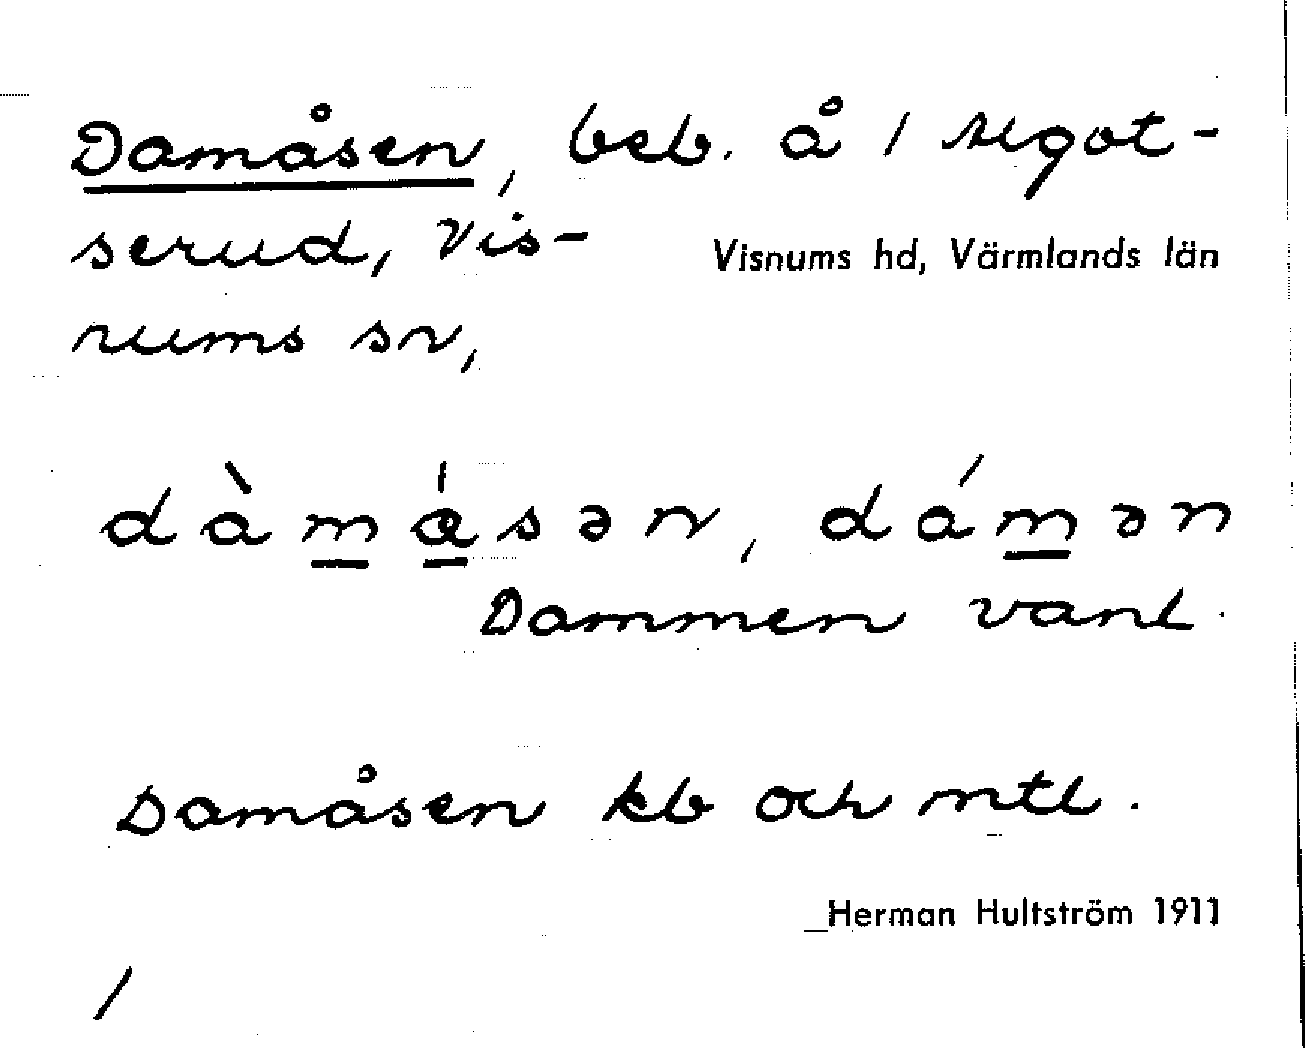 Damåsen, beb. å 1 Segot-
serud, Vis-
Visnums hd, Värmlands län
nums sn,
dàmåsən, dámən
Dammen vanl.
Damåsen kb och mtl.
Herman Hultström 1911
/